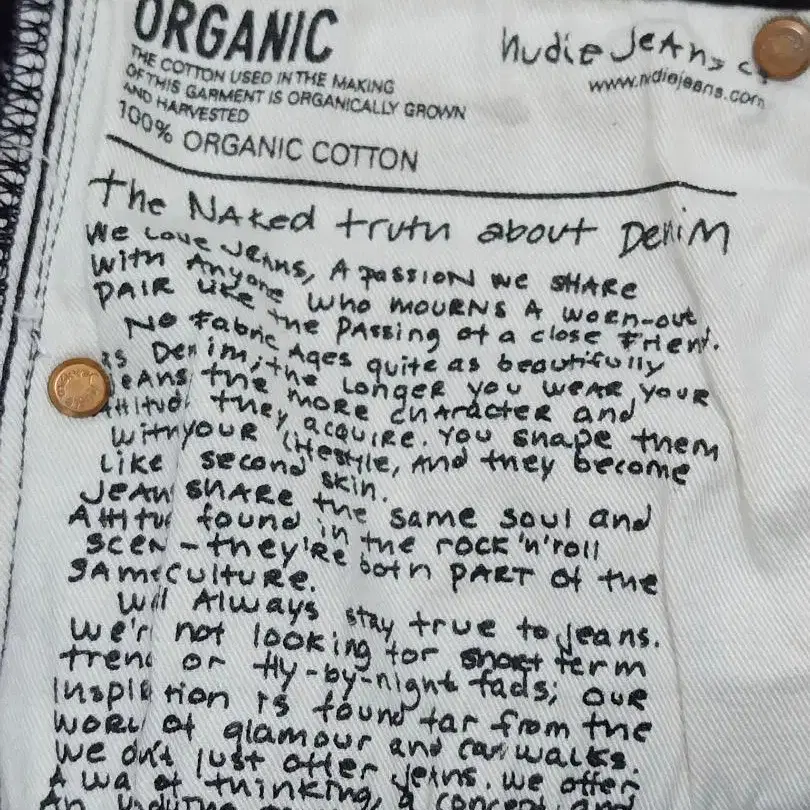 ORGANIC
THE COTTON USED IN THE MAKING
OF THIS GARMENT IS ORGANICALLY GROWN
AND HARVESTED
100% ORGANIC COTTON
nudie Jeans c
www.nudiejeans.com
the Naked truth about Denim
We Love Jeans, A passion we share
with Anyone who mourns a worn-out
pair like the passing of a close friend.
No fabric Ages quite as beautifully
as Denim, the longer you wear your
jeans the more character and
attitude they acquire. you shape them
with your lifestyle, and they become
like second skin.
Jeans share the same soul and
Attitud found in the rock'n'roll
scen - they're both part of the
same culture.
We'll Always stay true to jeans.
We'r not looking for short term
trend or fly-by-night fads; our
Inspiration is found far from the
world of glamour and catwalks.
We don't just offer jeans. we offer
A way of thinking, a concept and
An